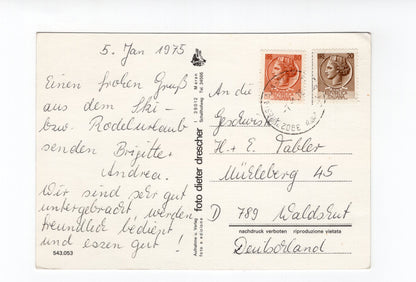 5. Jan 1975
Einen frohen Gruß
aus dem Ski-
bzw. Rodelurlaub
senden Brigitte +
Andrea.
Wir sind sehr gut
untergebracht, werden
freundlich bedient
und essen gut!
543.053
foto dieter drescher
I 39012 Meran
An die
Geschwister
H. + E. Tabler
Mühleberg 45
D 789 Waldshut
nachdruck verboten riproduzione vietata
Deutschland